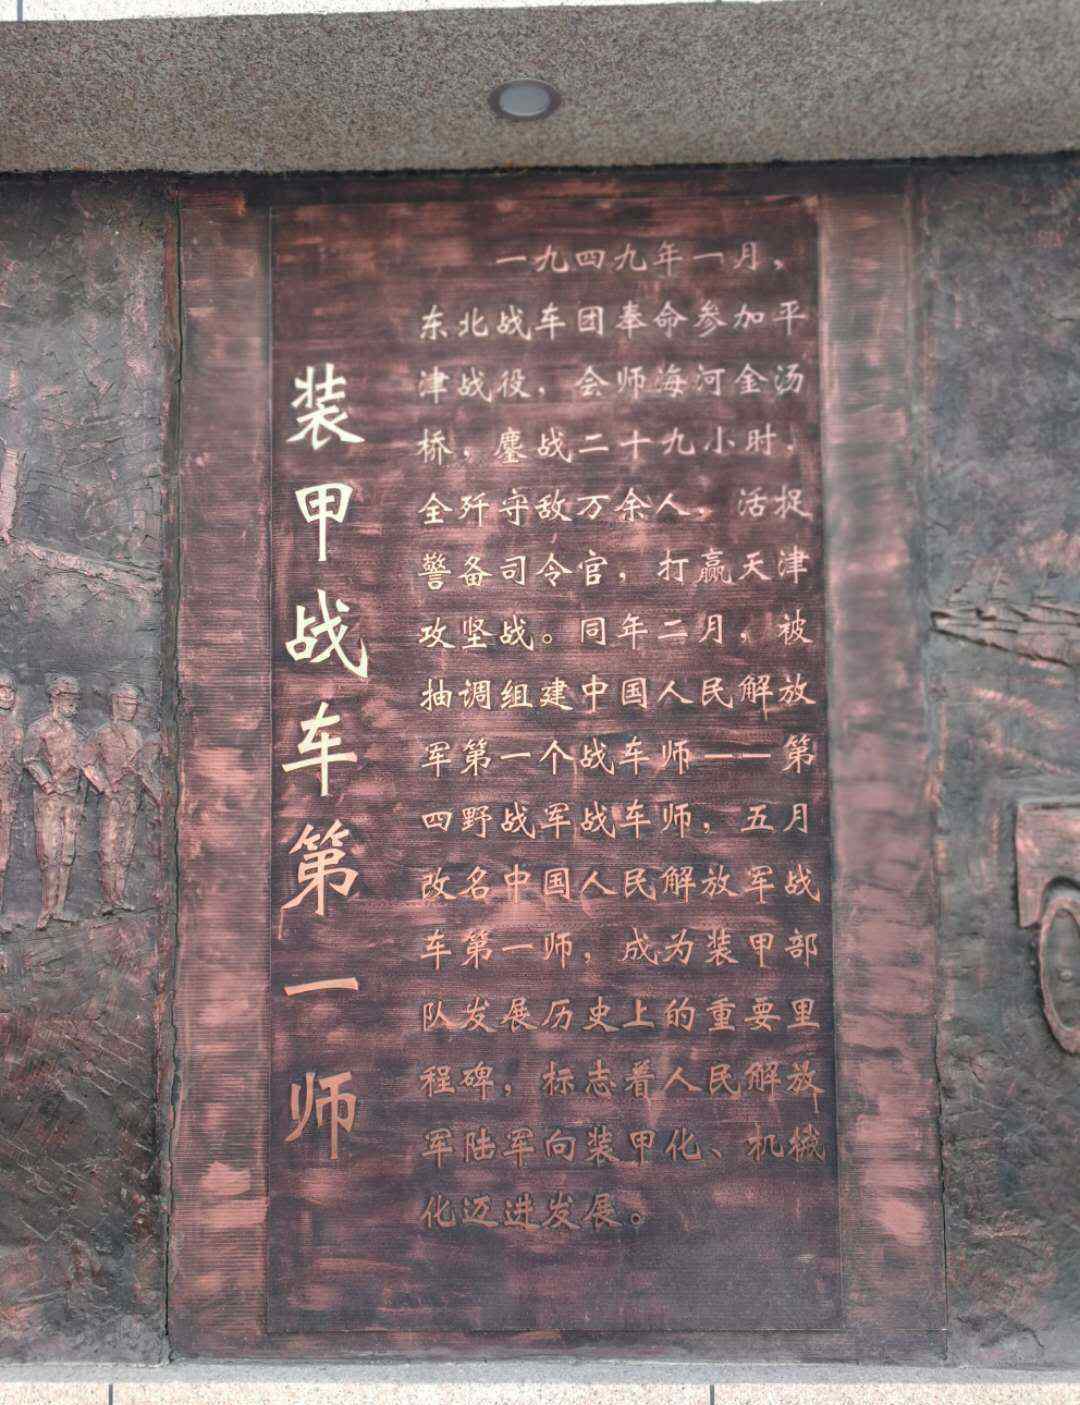 装甲战车第一师
一九四九年一月，
东北战车团奉命参加平
津战役，会师海河金汤
桥，鏖战二十九小时，
全歼守敌万余人，活捉
警备司令官，打赢天津
攻坚战。同年二月，被
抽调组建中国人民解放
军第一个战车师——第
四野战军战车师，五月
改名中国人民解放军战
车第一师，成为装甲部
队发展历史上的重要里
程碑，标志着人民解放
军陆军向装甲化、机械
化迈进发展。